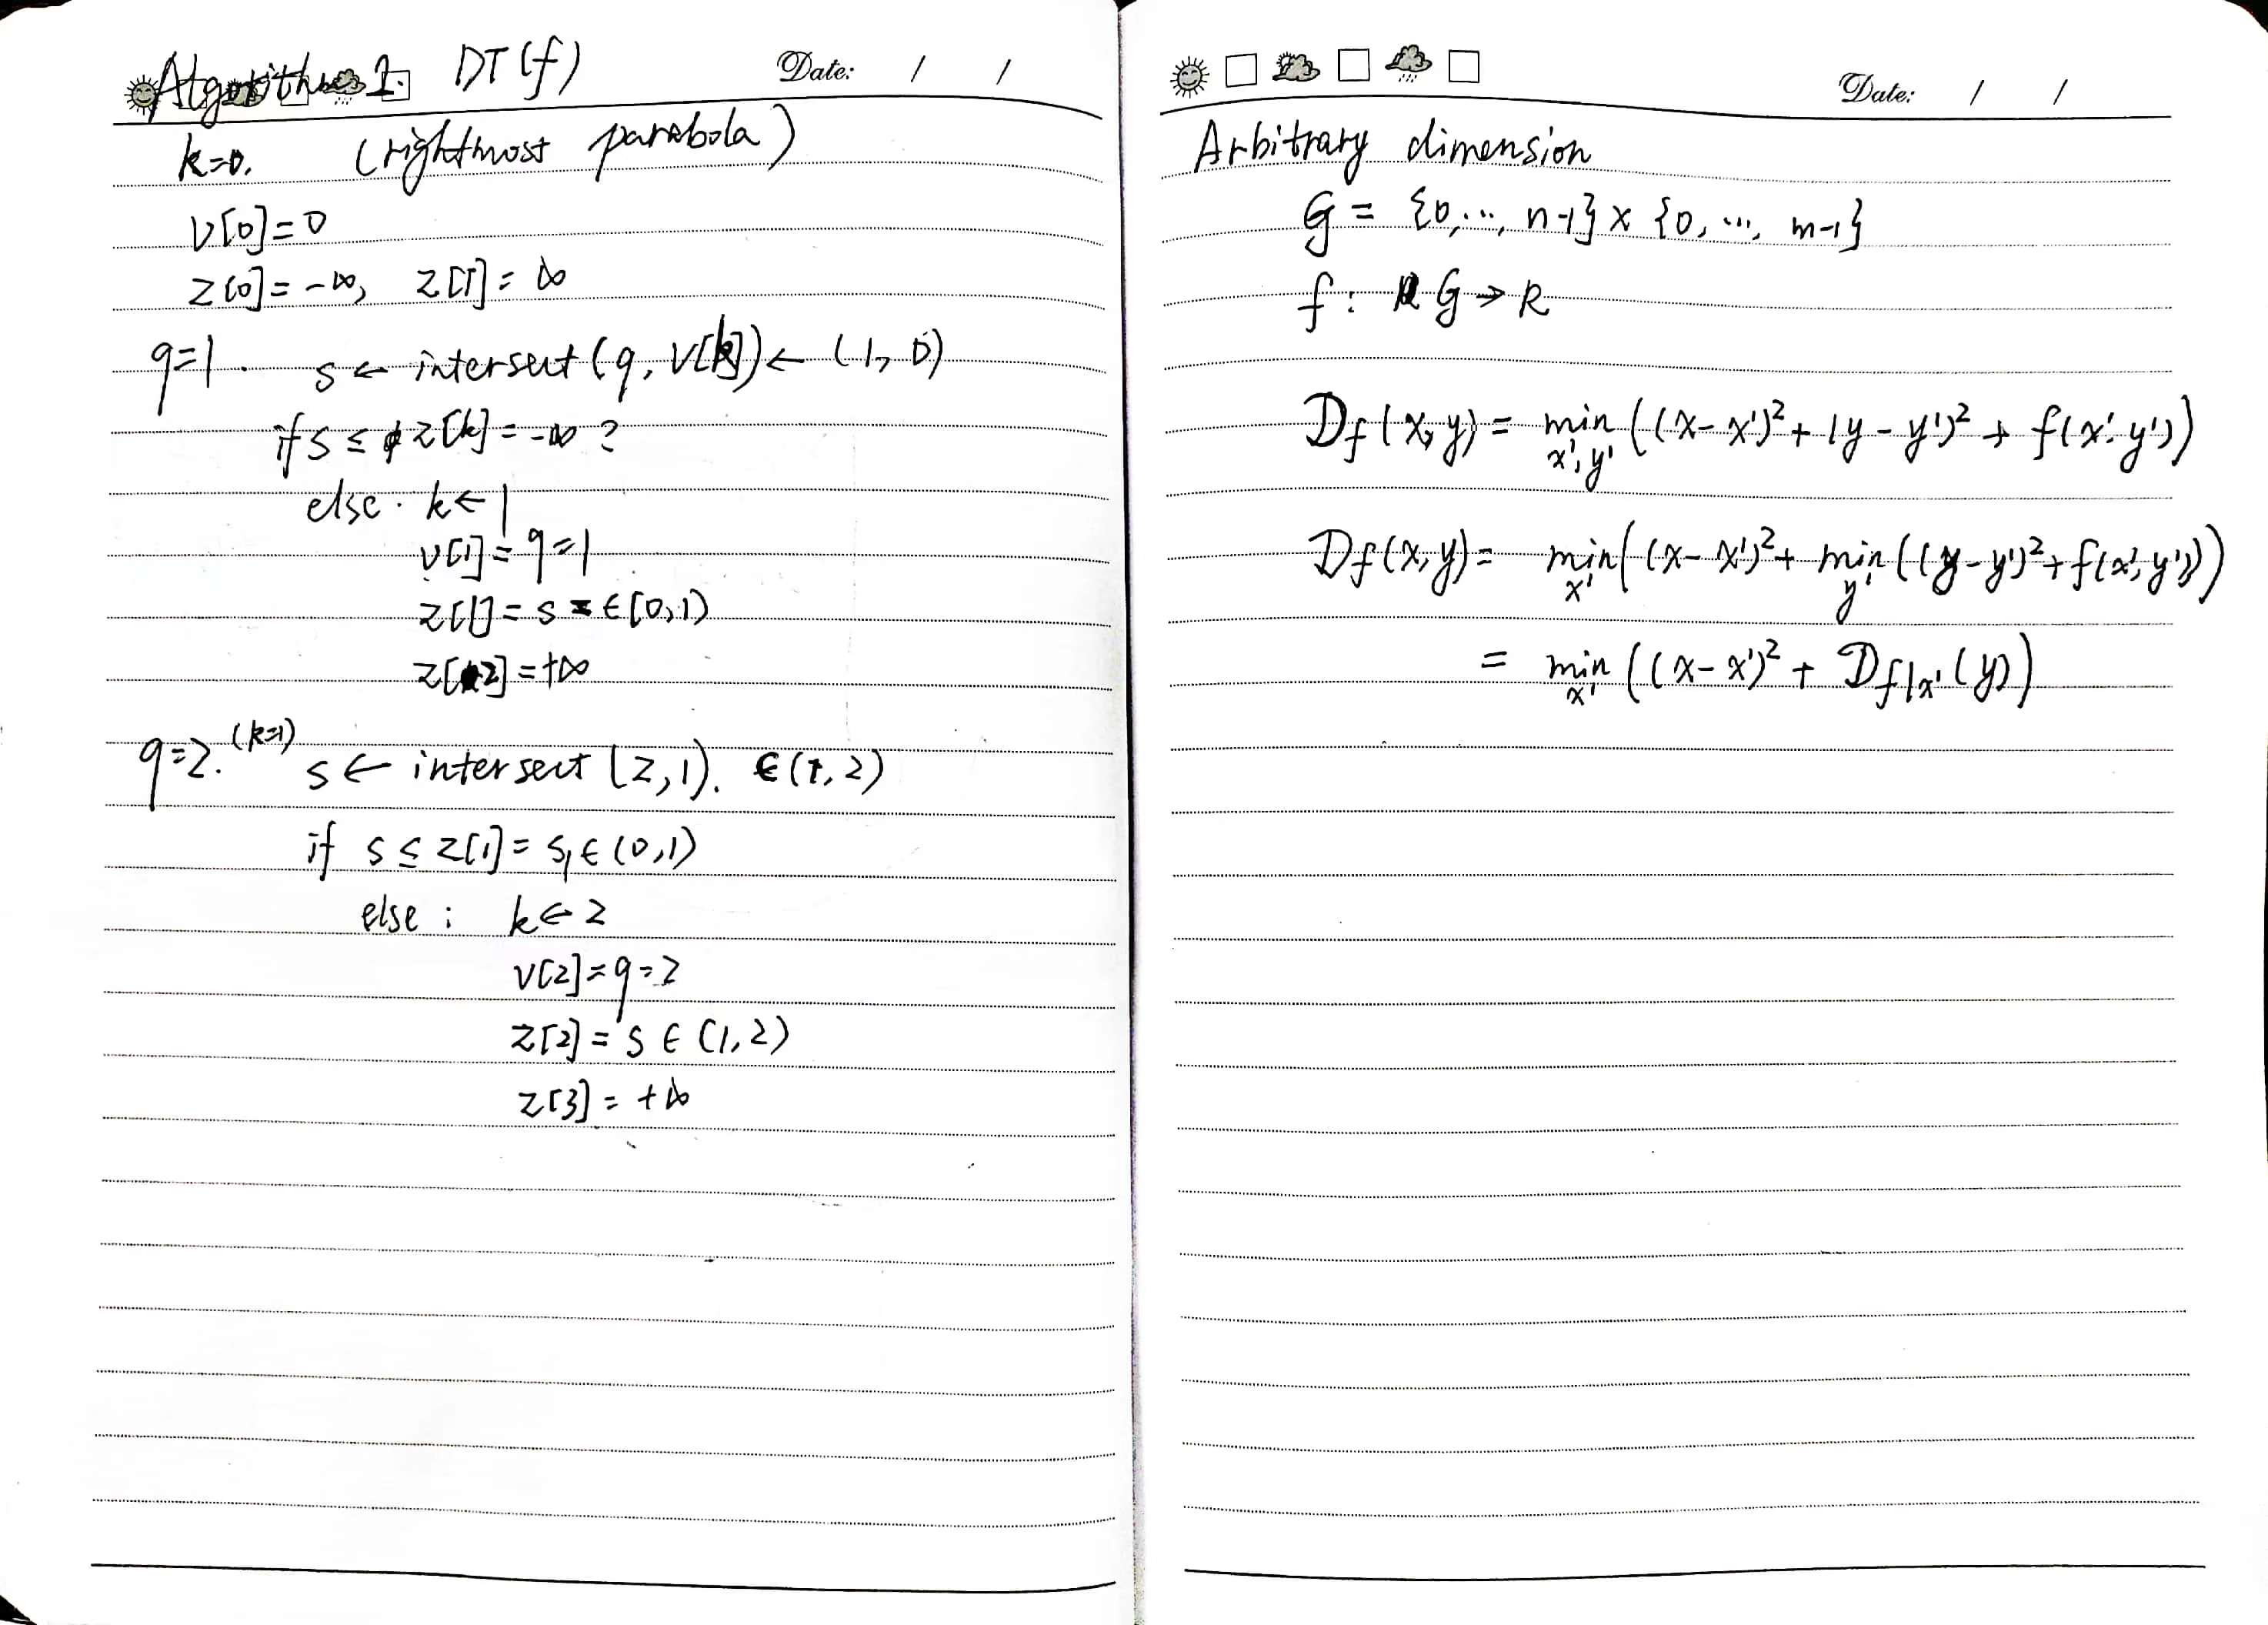 Algorithm 1. DT(f)
Date: / /
k=0. (rightmost parabola)
V[0]=0
Z[0]=-∞, Z[1]=∞
q=1. s ← intersect(q, V[k]) ← (1, 0)
if s ≤ Z[k] = -∞ ?
else. k ← 1
V[1] = q = 1
Z[1] = s ∈ [0,1)
Z[2] = +∞
q=2. (k=1) s ← intersect (2,1). ∈ (1, 2)
if s ≤ Z[1] = s₁ ∈ (0,1)
else : k ← 2
V[2] = q = 2
Z[2] = s ∈ (1,2)
Z[3] = +∞
Date: / /
Arbitrary dimension
G = {0, ..., n-1} × {0, ..., m-1}
f : G → R
Df(x,y) = min_{x',y'} ((x-x')² + (y-y')² + f(x',y'))
Df(x,y) = min_{x'} ((x-x')² + min_{y'} ((y-y')² + f(x',y')))
= min_{x'} ((x-x')² + D_{f|x'}(y))